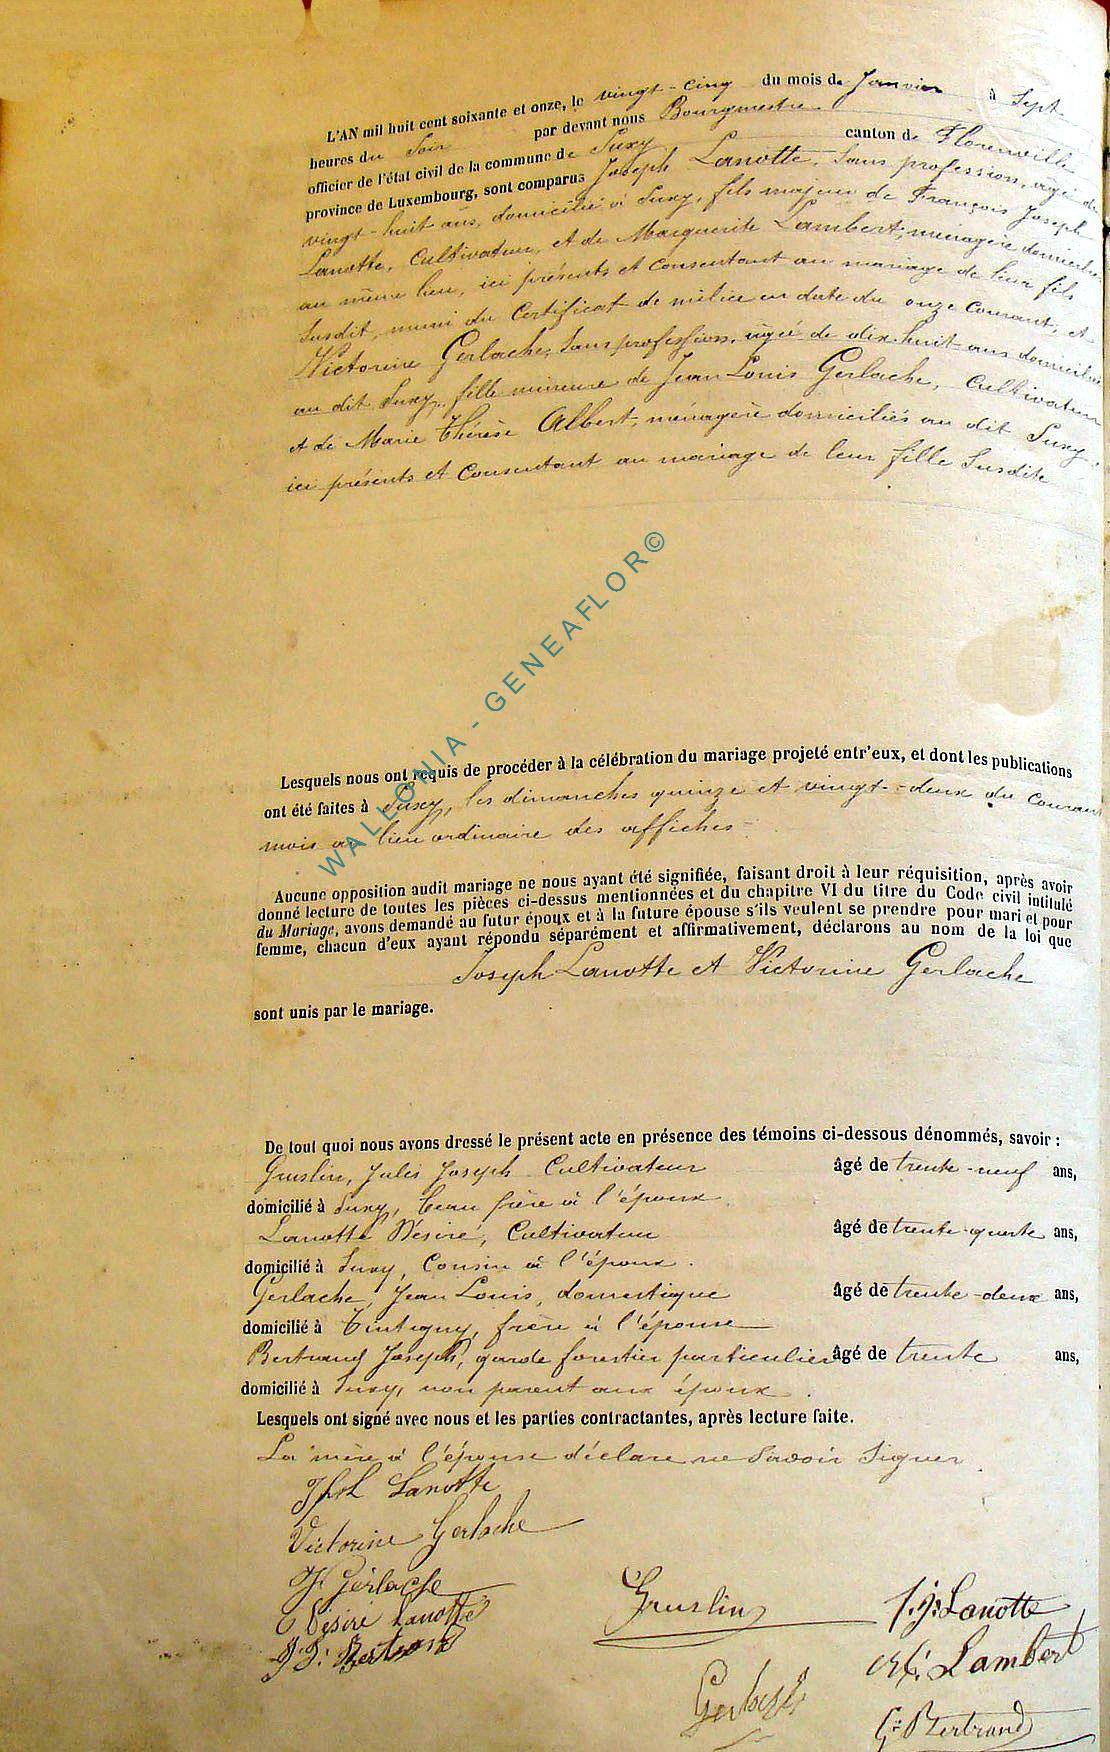 L'AN mil huit cent soixante et onze, le vingt-cinq du mois de Janvier à Sept
heures du Soir par devant nous Bourgmestre
officier de l'état civil de la commune de Suxy canton de Florenville
province de Luxembourg, sont comparus Joseph Lanotte, Sans profession, âgé de
vingt-huit ans, domicilié à Suxy, fils majeur de François Joseph
Lanotte, Cultivateur, et de Marguerite Lambert, ménagère domiciliés
au même lieu, ici présents et consentant au mariage de leur fils
Susdit, muni du Certificat de milice en date du onze Courant, et
Victorine Gerlache, Sans profession, âgée de dix-huit ans domiciliée
au dit Suxy, fille mineure de Jean Louis Gerlache, Cultivateur
et de Marie Thérèse Albert, ménagère domiciliés au dit Suxy,
ici présents et Consentant au mariage de leur fille Susdite
WALLONIA - GENEAFLOR©
Lesquels nous ont requis de procéder à la célébration du mariage projeté entr'eux, et dont les publications
ont été faites à Suxy, les dimanches quinze et vingt-deux du courant
mois au lieu ordinaire des affiches
Aucune opposition audit mariage ne nous ayant été signifiée, faisant droit à leur réquisition, après avoir
donné lecture de toutes les pièces ci-dessus mentionnées et du chapitre VI du titre du Code civil intitulé
du Mariage, avons demandé au futur époux et à la future épouse s'ils veulent se prendre pour mari et pour
femme, chacun d'eux ayant répondu séparément et affirmativement, déclarons au nom de la loi que
Joseph Lanotte et Victorine Gerlache
sont unis par le mariage.
De tout quoi nous avons dressé le présent acte en présence des témoins ci-dessous dénommés, savoir :
Gruslin, Jules Joseph Cultivateur âgé de trente-neuf ans,
domicilié à Suxy, beau frère à l'époux
Lanotte Désiré, Cultivateur âgé de trente-quatre ans,
domicilié à Suxy, Cousin à l'époux.
Gerlache, Jean Louis, domestique âgé de trente-deux ans,
domicilié à Tintigny, frère à l'épouse
Bertrand Joseph, garde forestier particulier âgé de trente ans,
domicilié à Suxy, non parent aux époux.
Lesquels ont signé avec nous et les parties contractantes, après lecture faite.
La mère à l'épouse déclare ne Savoir Signer.
Jph Lanotte
Victorine Gerlache
Gerlache
Désiré Lanotte
Bertrand
Gruslin
Gerlache
f. j. Lanotte
Lambert
Bertrand